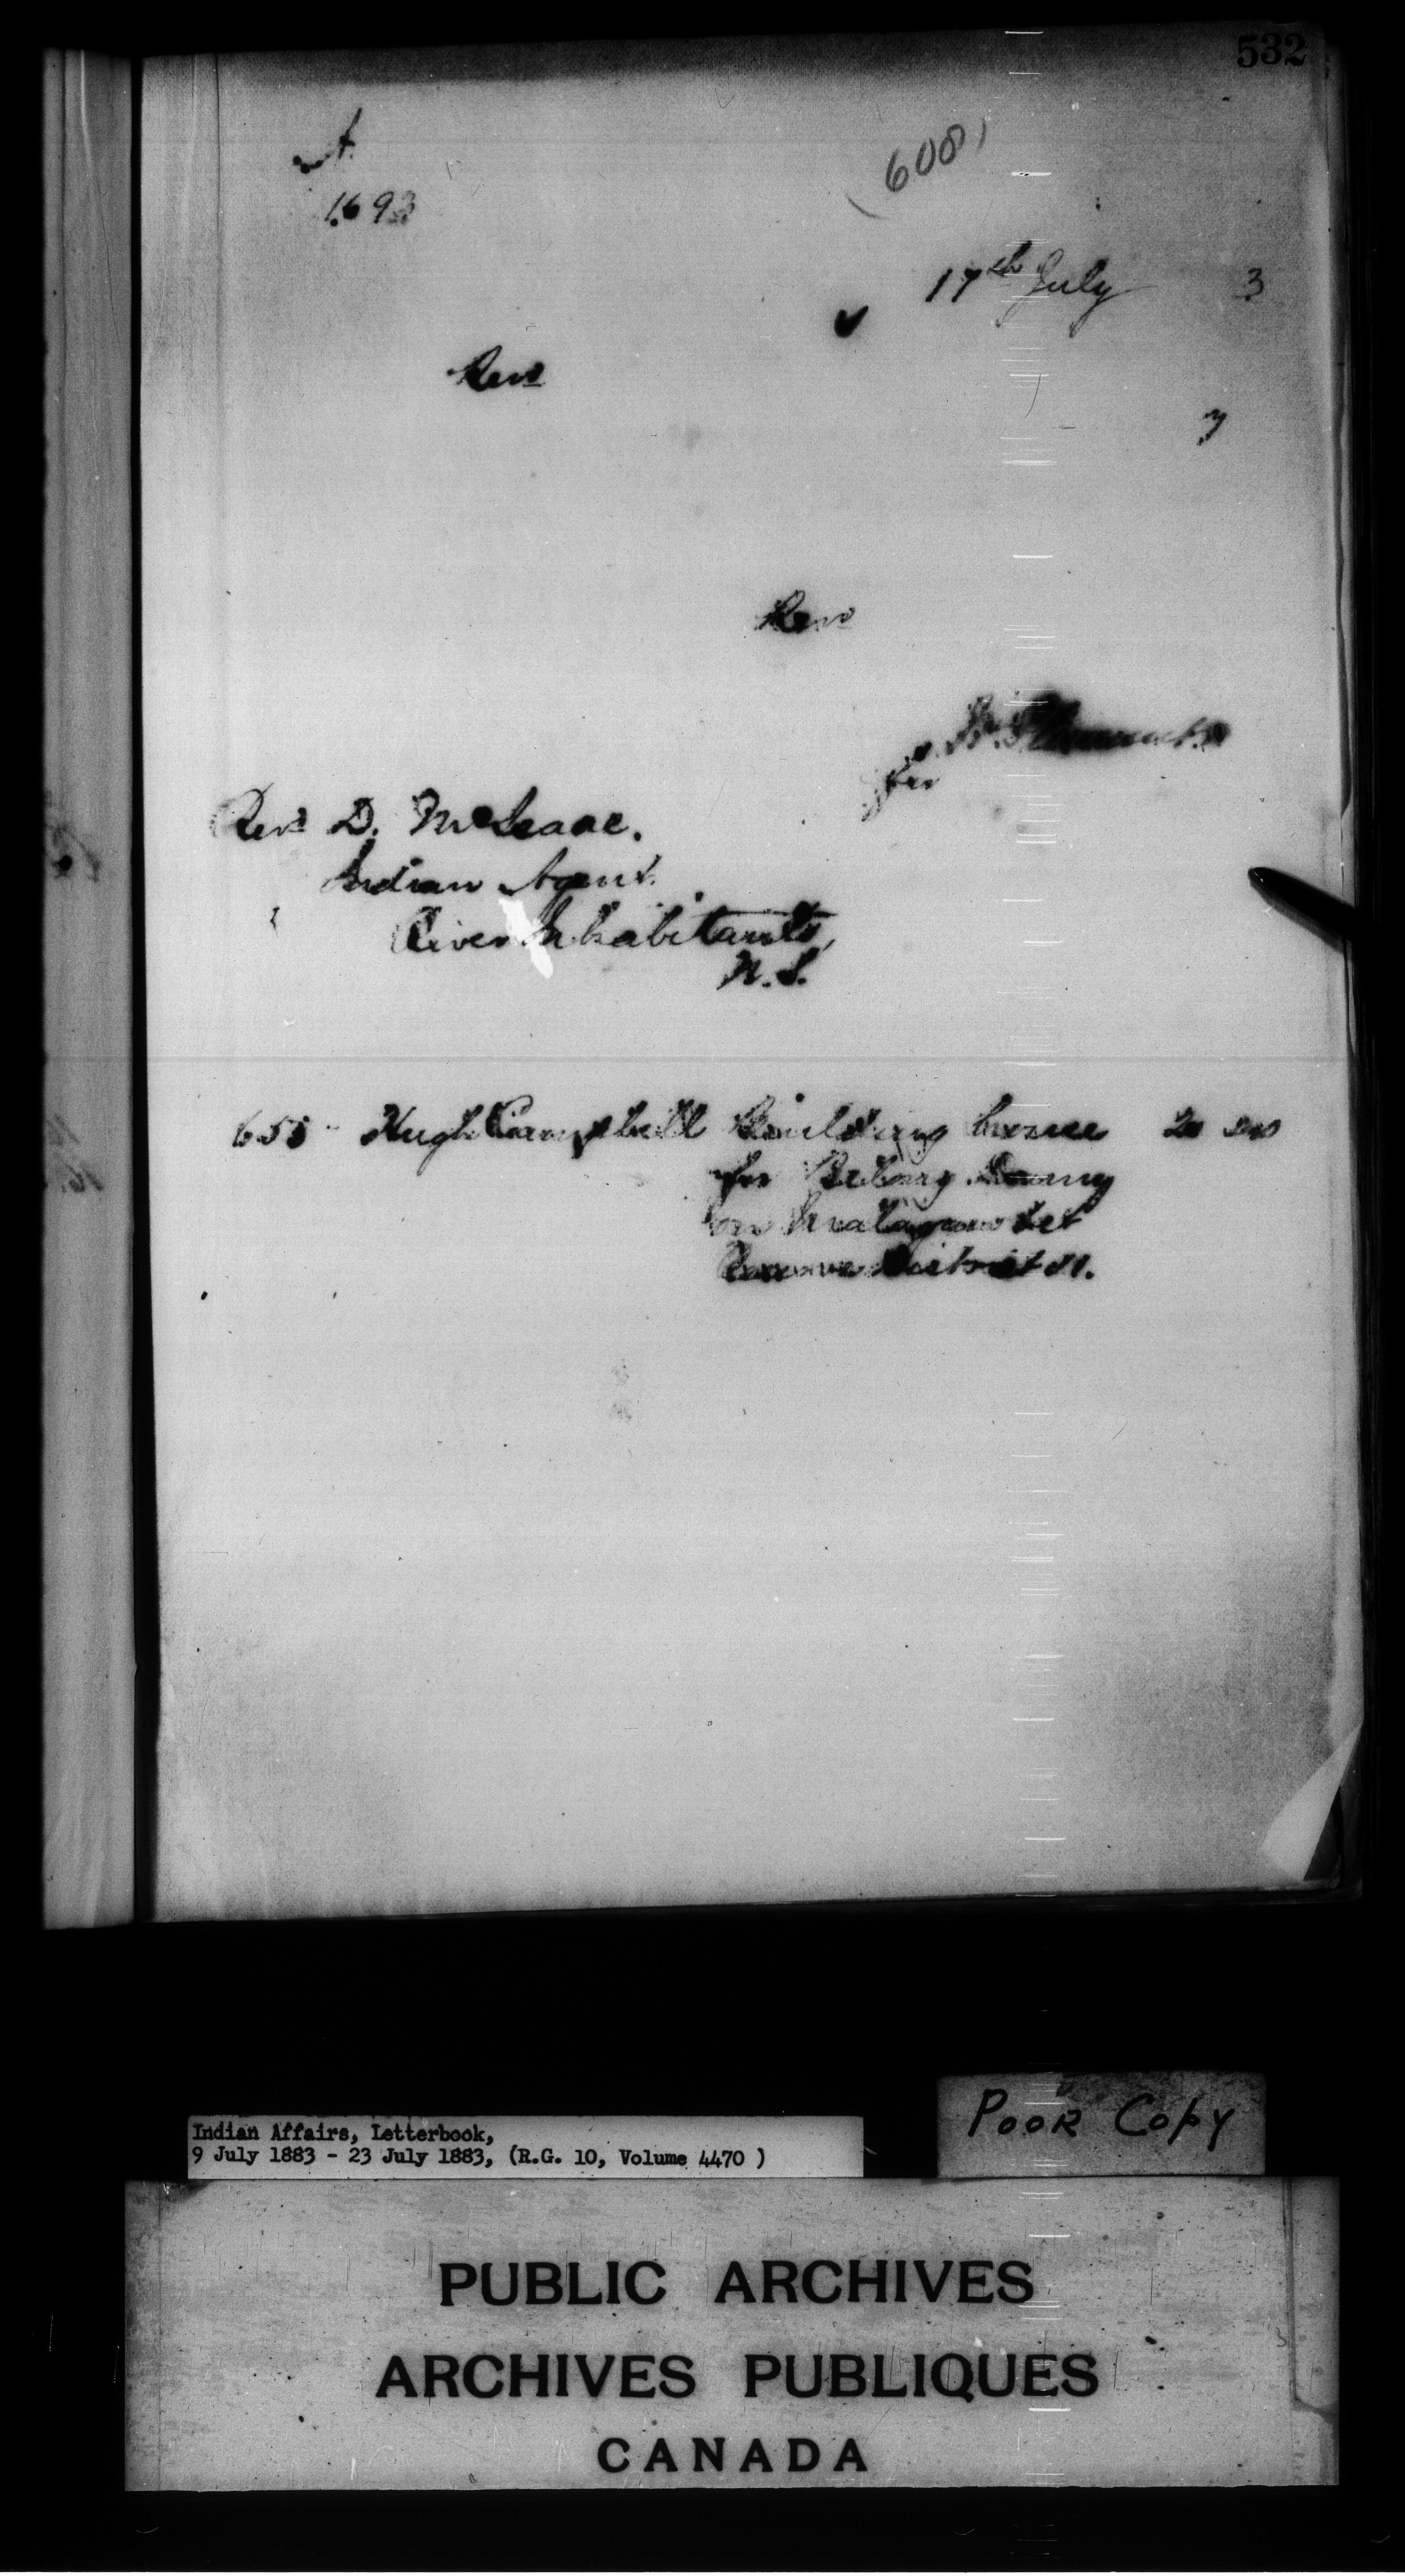 532
A.
1693
(608)
17th July 3
Revd
7
Revd
for
Revd D. McIsaac.
Indian Agent.
River Inhabitants,
N.S.
655 Hugh Campbell Building house 20 00
for
on
Reserve District 11.
Poor Copy
Indian Affairs, Letterbook,
9 July 1883 - 23 July 1883, (R.G. 10, Volume 4470 )
PUBLIC ARCHIVES
ARCHIVES PUBLIQUES
CANADA